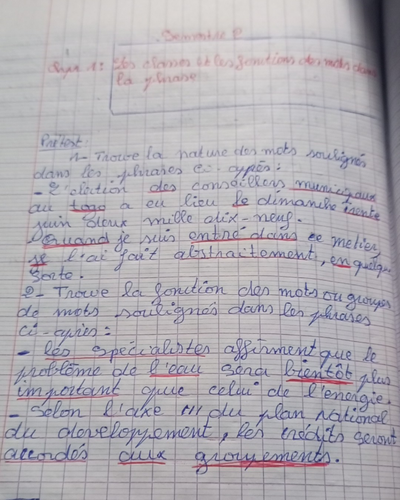 Semantic P
Sujet 1: Les classes et les fonctions des mots dans
la phrase
Prétest:
1- Trouve la nature des mots soulignés
dans les phrases ci-après:
- L'élection des conseillers municipaux
au togo a eu lieu le dimanche trente
juin deux mille dix-neuf.
- Quand je suis entré dans ce métier,
je l'ai fait abstraitement, en quelque
sorte.
2- Trouve la fonction des mots ou groupes
de mots soulignés dans les phrases
ci-après:
- Les spécialistes affirment que le
problème de l'eau sera bientôt plus
important que celui de l'énergie.
- Selon l'axe III du plan national
du développement, les crédits seront
accordés aux groupements.